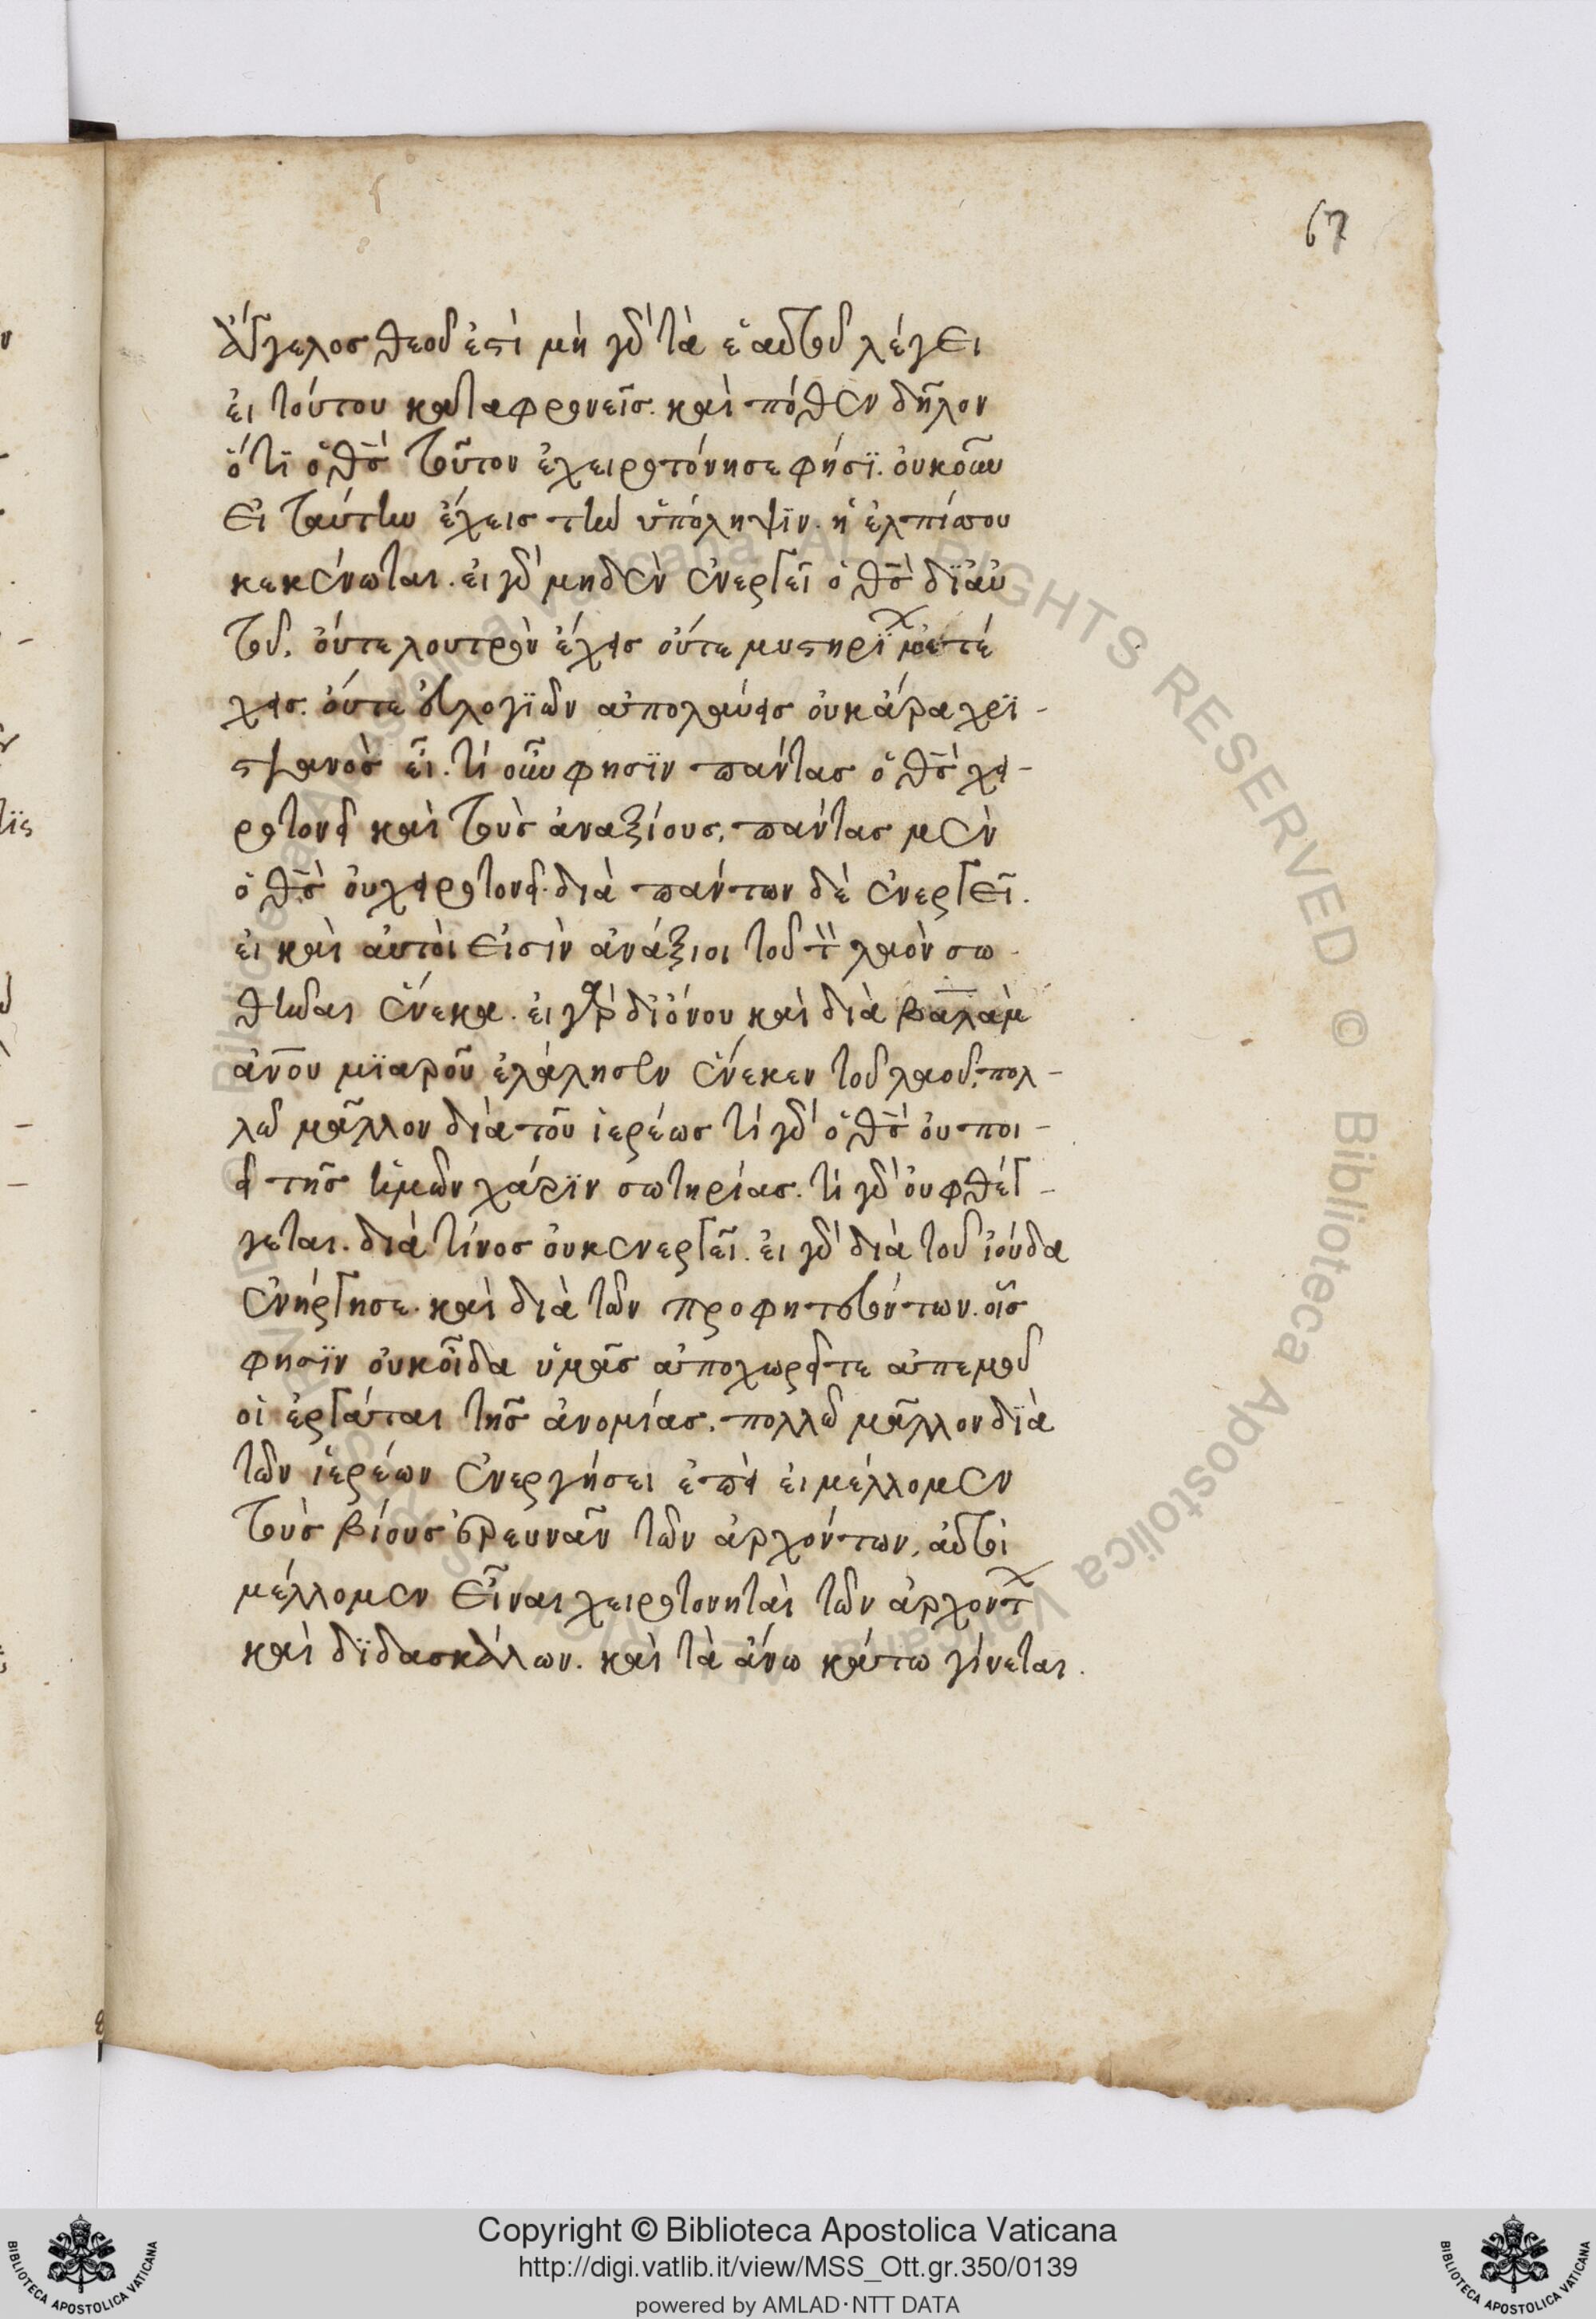 67
ἄγγελος θεοῦ ἐστὶ μὴ γὰρ τὰ ἑαυτοῦ λέγει
ἐι τούτου καταφρονεῖς. καὶ πόθεν δῆλον
ὅτϊ ὁ θς̅ τοῦτον ἐχειροτόνησε φήσϊ. ὀυκοῦν
ἐι ταύτην ἔχεις τὴν ὑπόληψϊν. ἡ ἐλπίς σου
κεκένωται. ἐι γὰρ μηδὲν ἐνεργεῖ ὁ θς̅ δϊ ἀυ
τοῦ, ὄυτε λουτρὸν ἔχεις ὄυτε μυστηρϊων μετέ
χεις. ὄυτε ἐυλογϊῶν ἀπολαύεις ὀυκ ἄρα χρϊ-
στιανὸς εἶ. τί οὖν φησϊν πάντας ὁ θς̅ χει-
ροτονεῖ καὶ τοὺς ἀναξίους, πάντας μὲν
ὁ θς̅ ὀυ χειροτονεῖ. διὰ πάντων δὲ ἐνεργεῖ.
ἐι καὶ ἀυτοὶ ἐισὶν ἀνάξιοι τοῦ τὸν λαὸν σω-
θῆναι ἕνεκα. ἐι γὰρ δϊ ὄνου καὶ διὰ βαλαὰμ
ἀνο̅υ μϊαροῦ ἐλάλησεν ἕνεκεν τοῦ λαοῦ, πολ-
λῶ μᾶλλον διὰ τοῦ ἱερέως τί γὰρ ὁ θς̅ ὀυ ποι-
εῖ τῆς ἡμῶν χάρϊν σωτηρίας. τί γὰρ ὀυ φθέγ-
γεται. διὰ τίνος ὀυκ ἐνεργεῖ. ἐι γὰρ διὰ τοῦ ἰούδα
ἐνήργησε. καὶ διὰ τῶν προφητευόντων. οἷς
φησϊν ὀυκ οἶδα ὑμᾶς ἀποχωρεῖτε ἀπ εμοῦ
οἱ ἐργάται τῆς ἀνομίας, πολλῶ μᾶλλον δϊὰ
τῶν ἱερέων ἐνεργήσει ἐπεὶ ἐι μέλλομεν
τοὺς βίους ἐρευνᾶν τῶν ἀρχόντων, ἀυτοὶ
μέλλομεν εἶναι χειροτονηταὶ τῶν ἀρχόντων
καὶ δϊδασκάλων. καὶ τὰ ἄνω κάτω γίνεται.
Copyright © Biblioteca Apostolica Vaticana
http://digi.vatlib.it/view/MSS_Ott.gr.350/0139
powered by AMLAD·NTT DATA
BIBLIOTECA APOSTOLICA VATICANA
BIBLIOTECA APOSTOLICA VATICANA